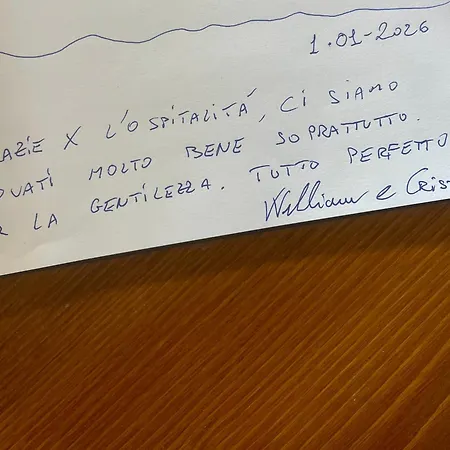 1.01-2026
AZIE X L'OSPITALITÁ, CI SIAMO
OVATI MOLTO BENE SOPRATTUTTO.
R LA GENTILEZZA. TUTTO PERFETTO
William e Cris